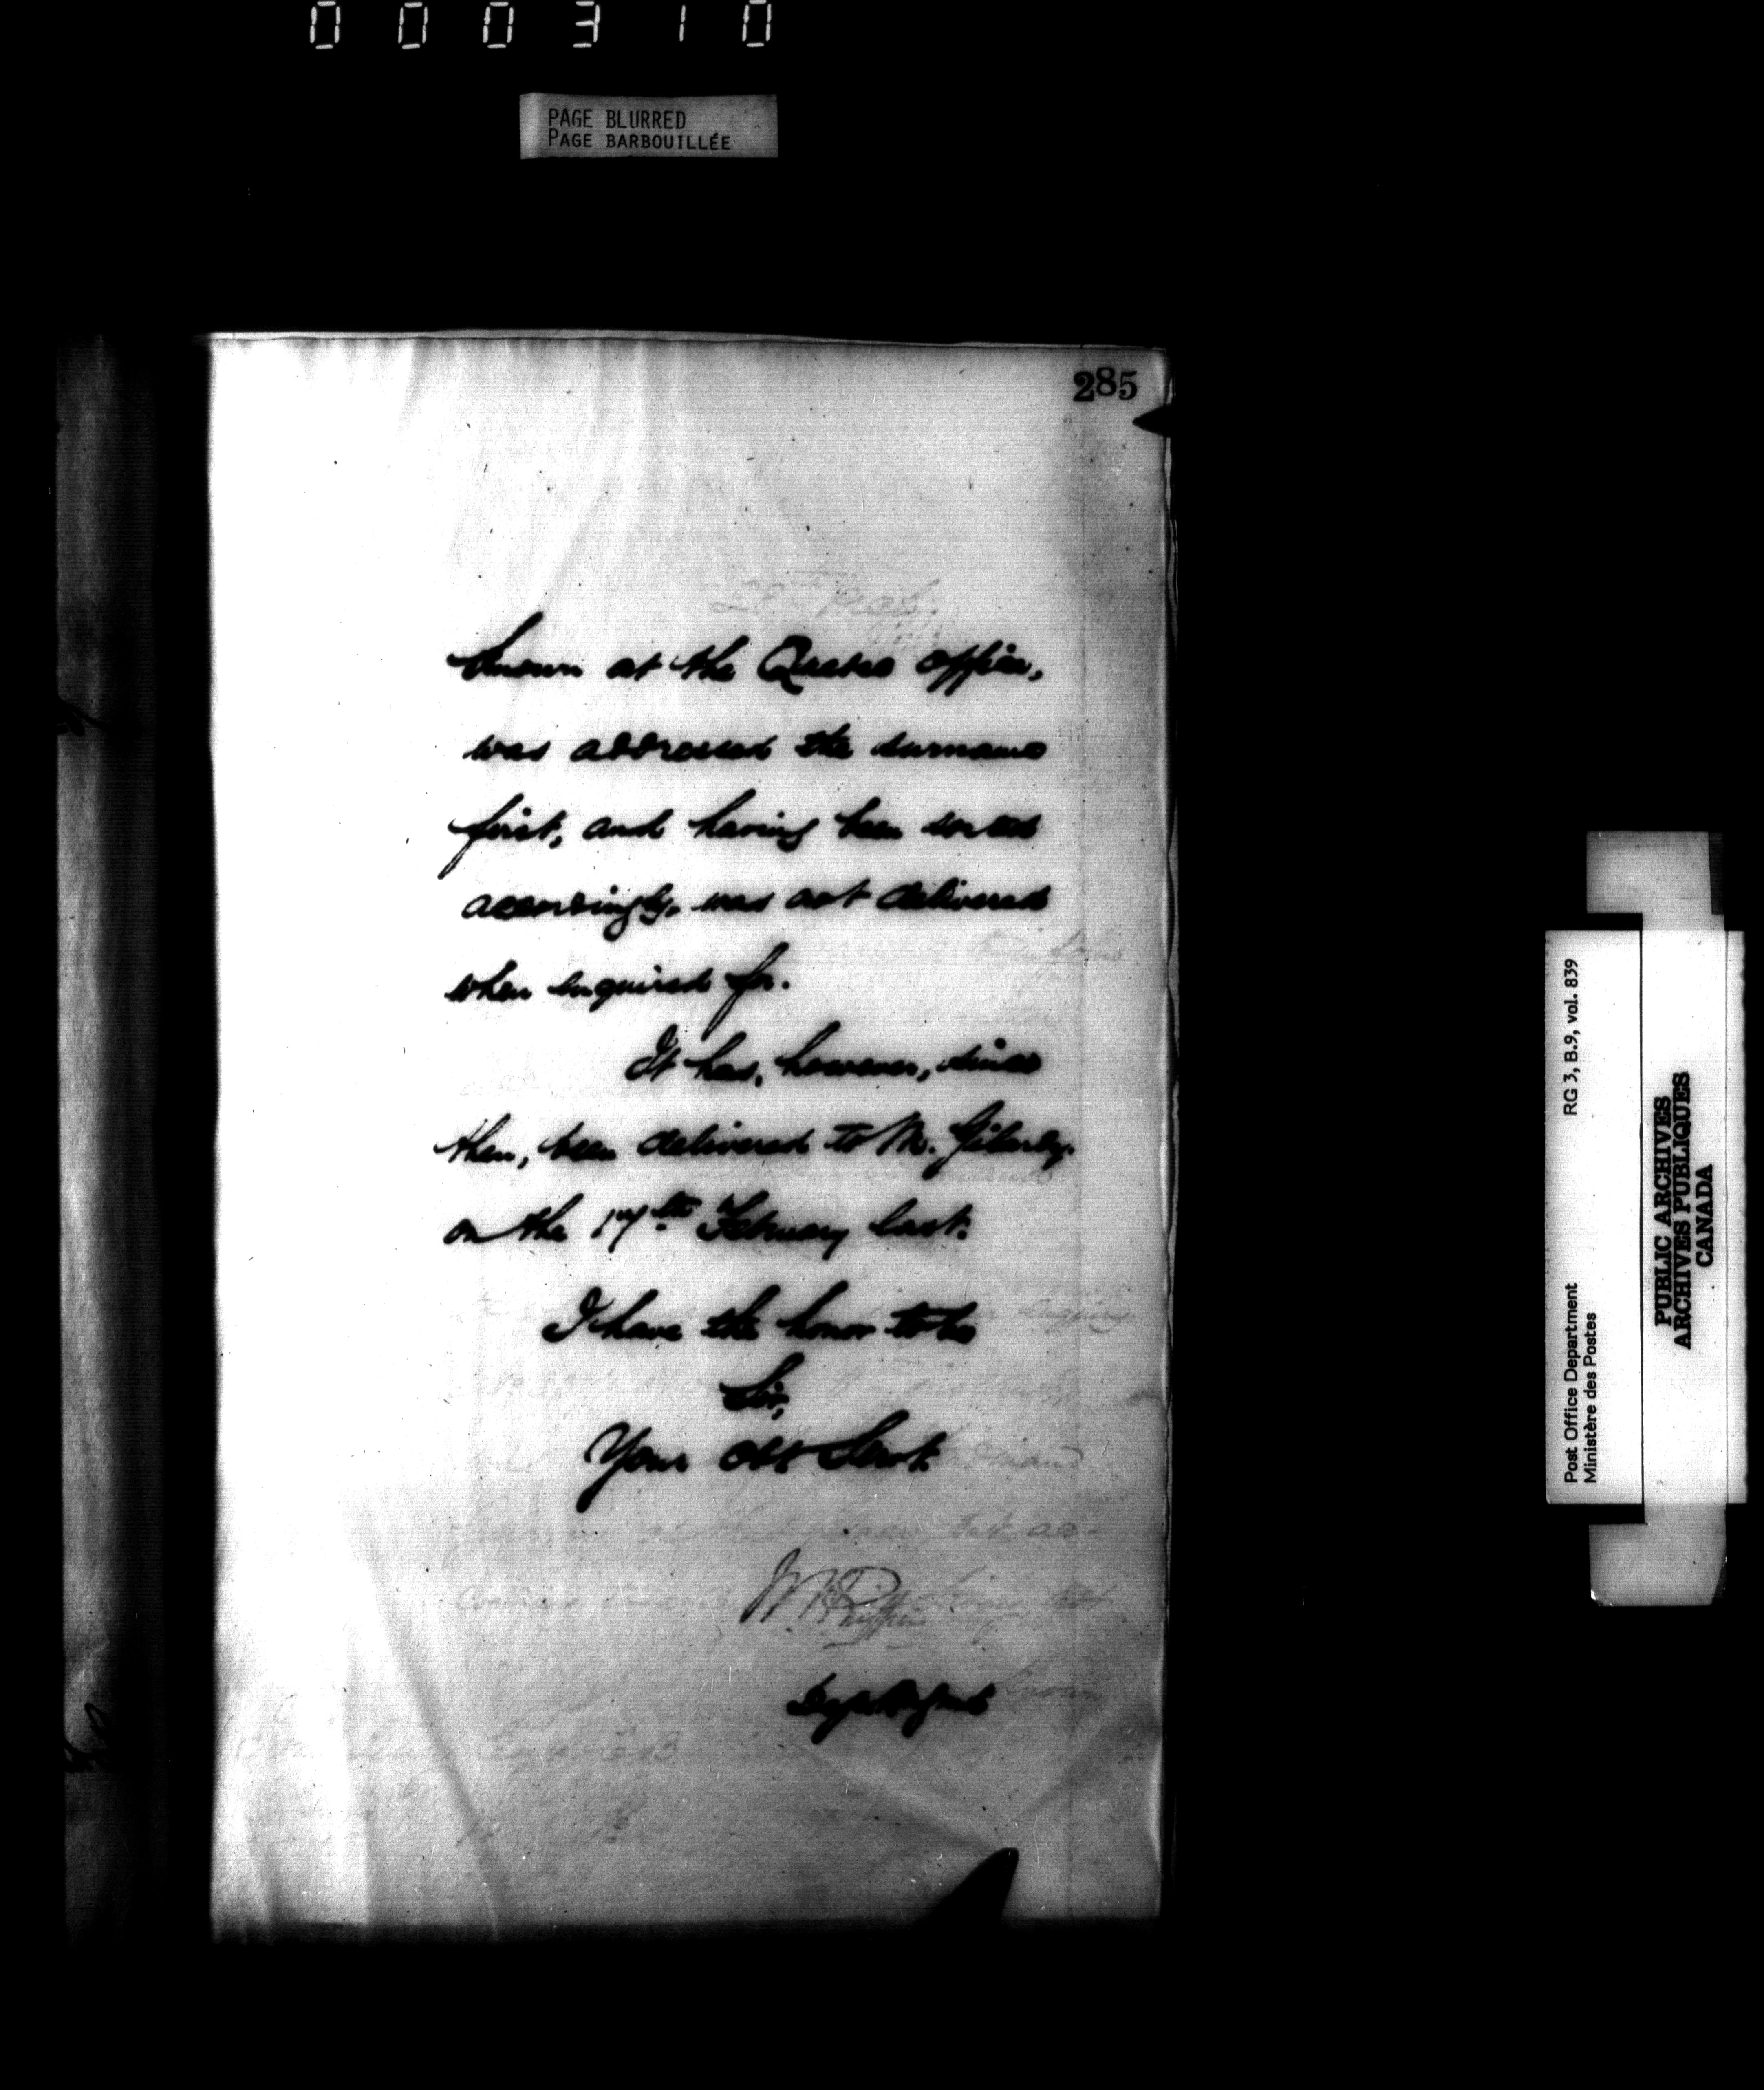 000310
PAGE BLURRED
PAGE BARBOUILLÉE
285
known at the Quebec Office,
was addressed the surname
first, and having been sorted
accordingly, was not delivered
when enquired for.
It has, however, since
then, been delivered to M.
on the 17th February last.
I have the honor to be
Sir,
Your Obt Servt.
W. H. Griffin
Post Office Department RG 3, B.9, vol. 839
Ministère des Postes
PUBLIC ARCHIVES
ARCHIVES PUBLIQUES
CANADA